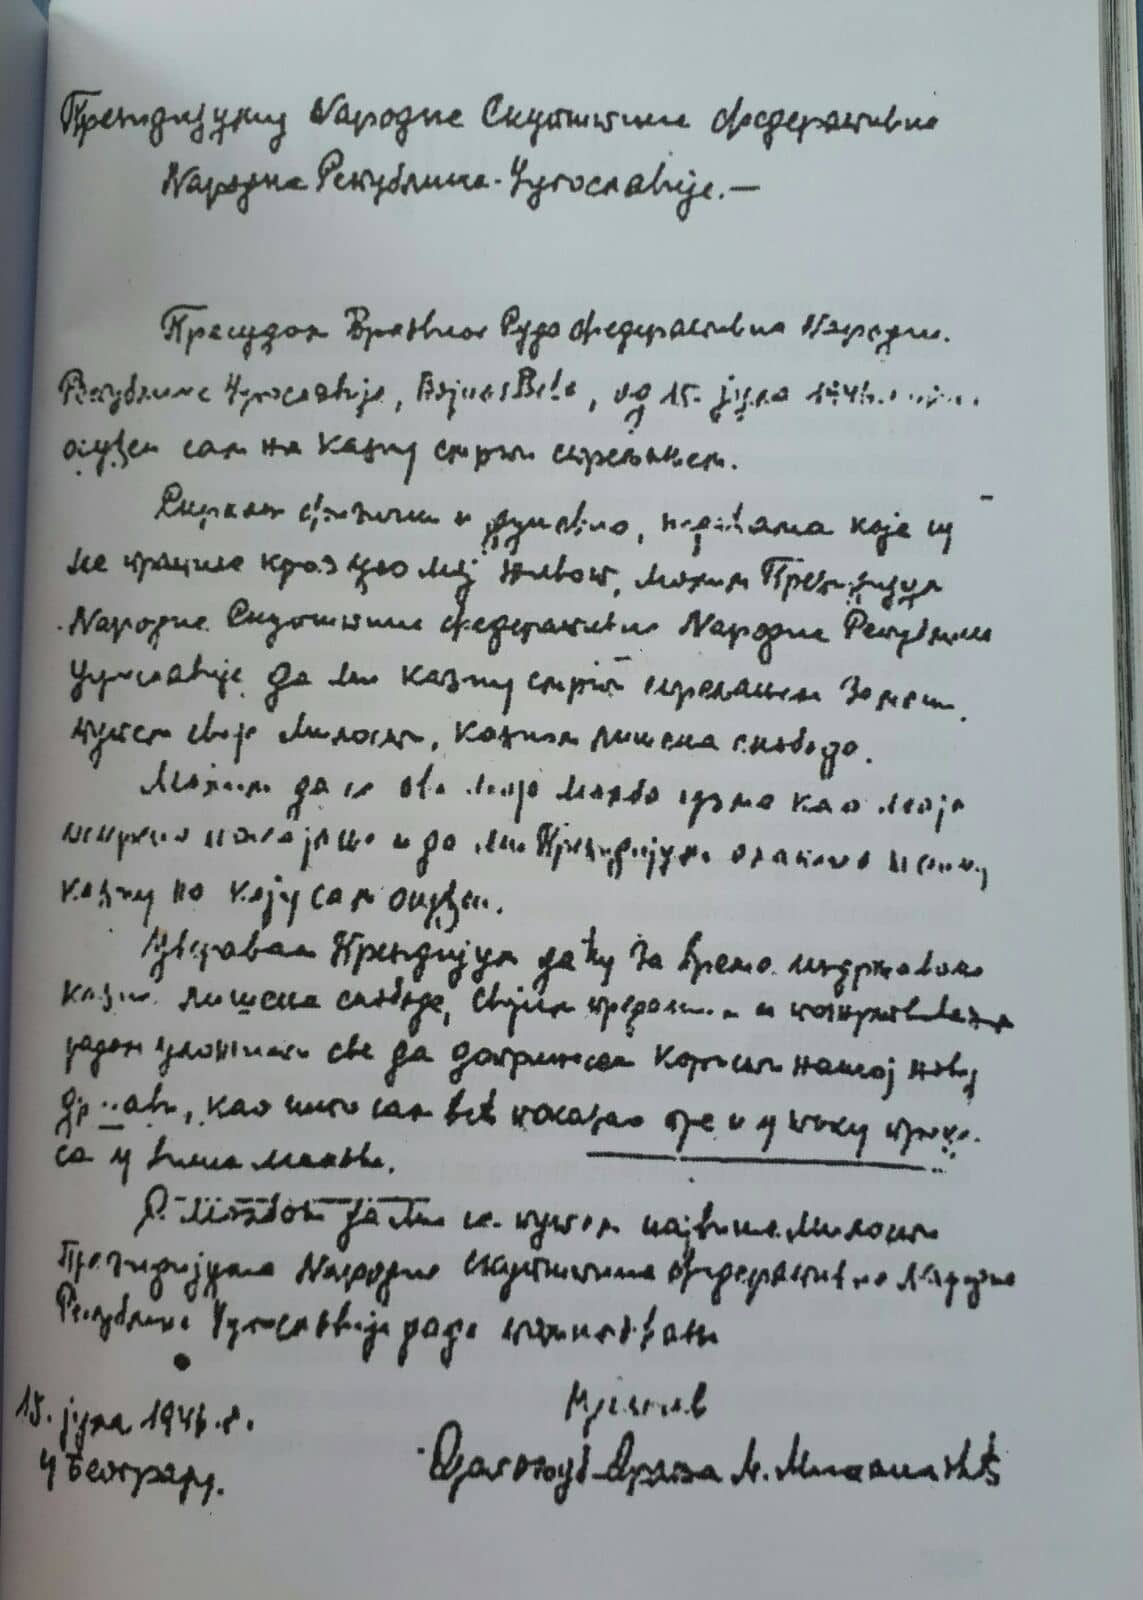 Президијуму Народне Скупштине Федеративне
Народне Републике Југославије.—
Пресудом Врховног Суда Федеративне Народне
Републике Југославије, Војно Веће, од 15. јула 1946.
осуђен сам на казну смрти стрељањем.
физички и душевно, недаћама које су
ме пратиле кроз цео мој живот, молим Президијум
Народне Скупштине Федеративне Народне Републике
Југославије да ми казну смрти стрељањем замени
путем своје милости, казном лишења слободе.
Молим да се ова моја молба узме као моје
искрено покајање и да ми Президијум олакша
казну на коју сам осуђен.
Уверавам Президијум да ћу за време издржавања
казне лишења слободе, својим преданим и пожртвованим
радом уложити све да допринесем користи нашој новој
држави, као што сам већ показао пре и у току процеса
са у вима
С молбом да ми се путем највише милости
Президијума Народне Скупштине Федеративне Народне
Републике Југославије казна
15. јула 1946. г.
у Београду.
Драгољуб-Дража М. Михаиловић